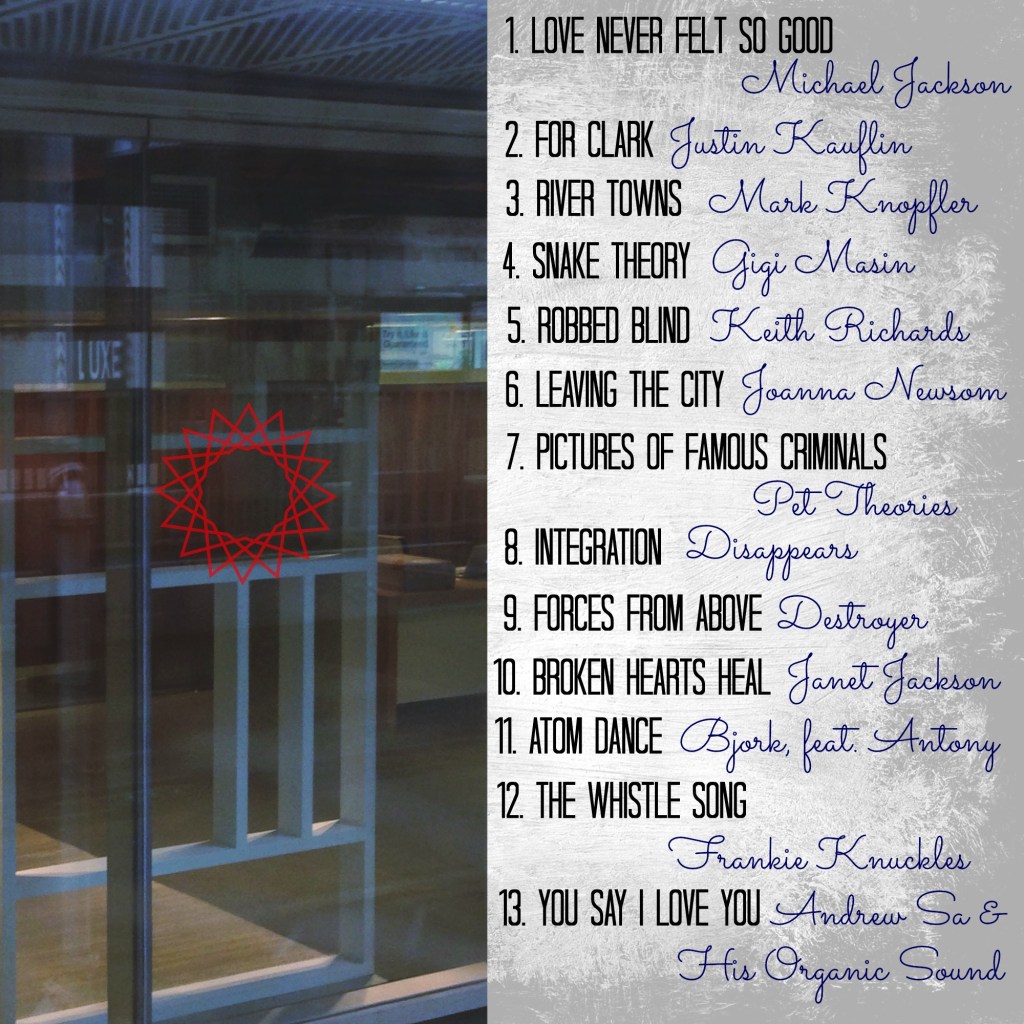 LUXE
1. LOVE NEVER FELT SO GOOD
Michael Jackson
2. FOR CLARK Justin Kauflin
3. RIVER TOWNS Mark Knopfler
4. SNAKE THEORY Gigi Masin
5. ROBBED BLIND Keith Richards
6. LEAVING THE CITY Joanna Newsom
7. PICTURES OF FAMOUS CRIMINALS
Pet Theories
8. INTEGRATION Disappears
9. FORCES FROM ABOVE Destroyer
10. BROKEN HEARTS HEAL Janet Jackson
11. ATOM DANCE Bjork, feat. Antony
12. THE WHISTLE SONG
Frankie Knuckles
13. YOU SAY I LOVE YOU Andrew Sa &
His Organic Sound